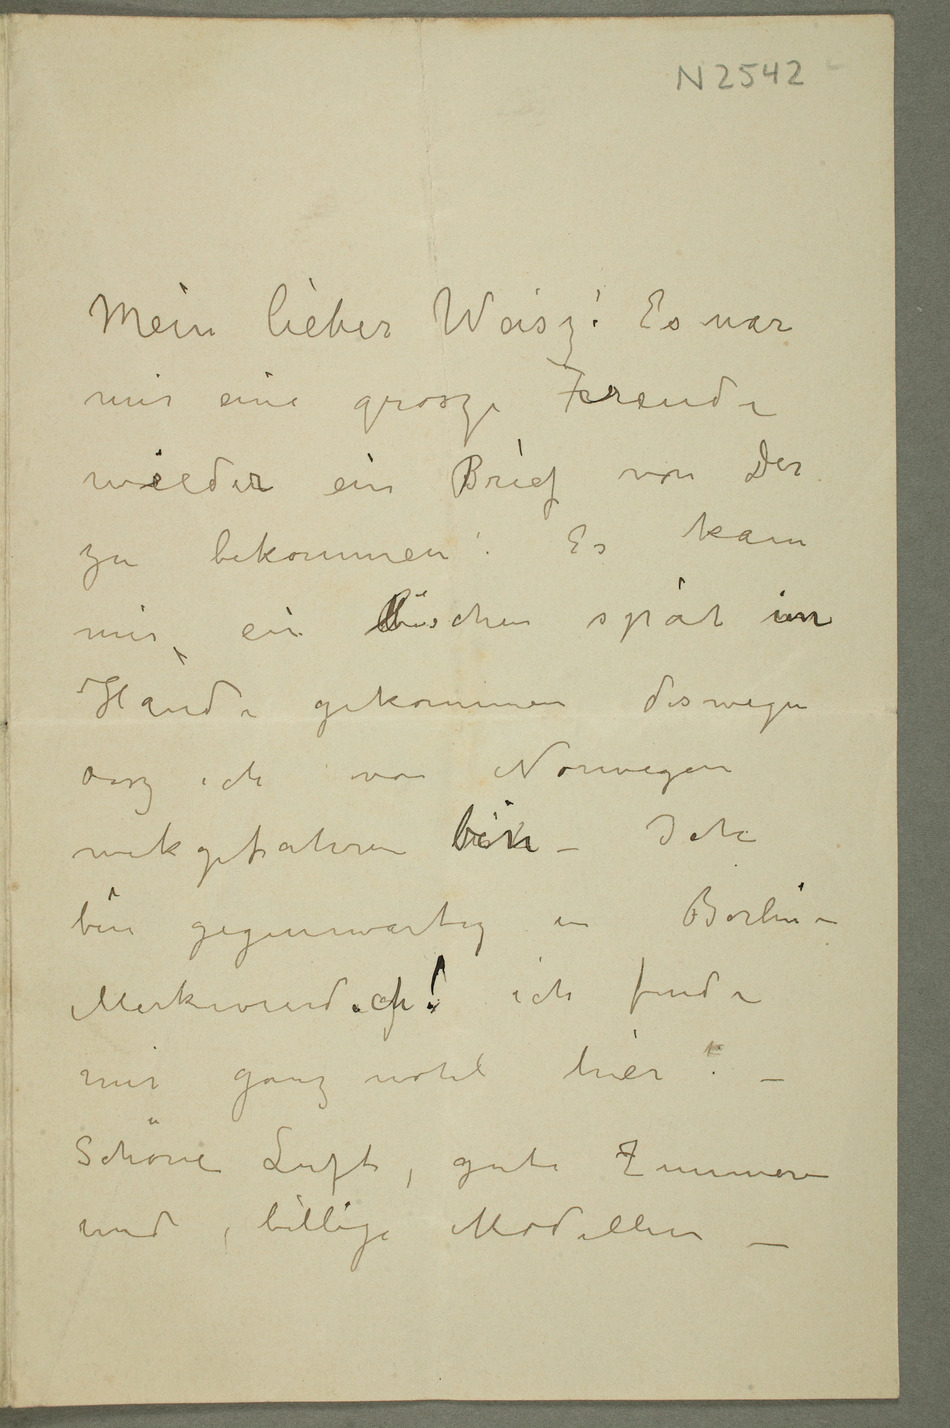 N 2542
Mein lieber Waisz! Es war
mir eine grosze Freude
wieder ein Brief von Der
zu bekommen! Es kam
mir ein bischen spät in
Hände gekommen deswegen
dasz ich von Norwegen
wekgefahren bin – Ich
bin gegenwartig in Berlin –
Merkwurdich! ich finde
mir ganz wohl hier! –
Schöne Luft, gute Zimmern
und, billige Modellen –